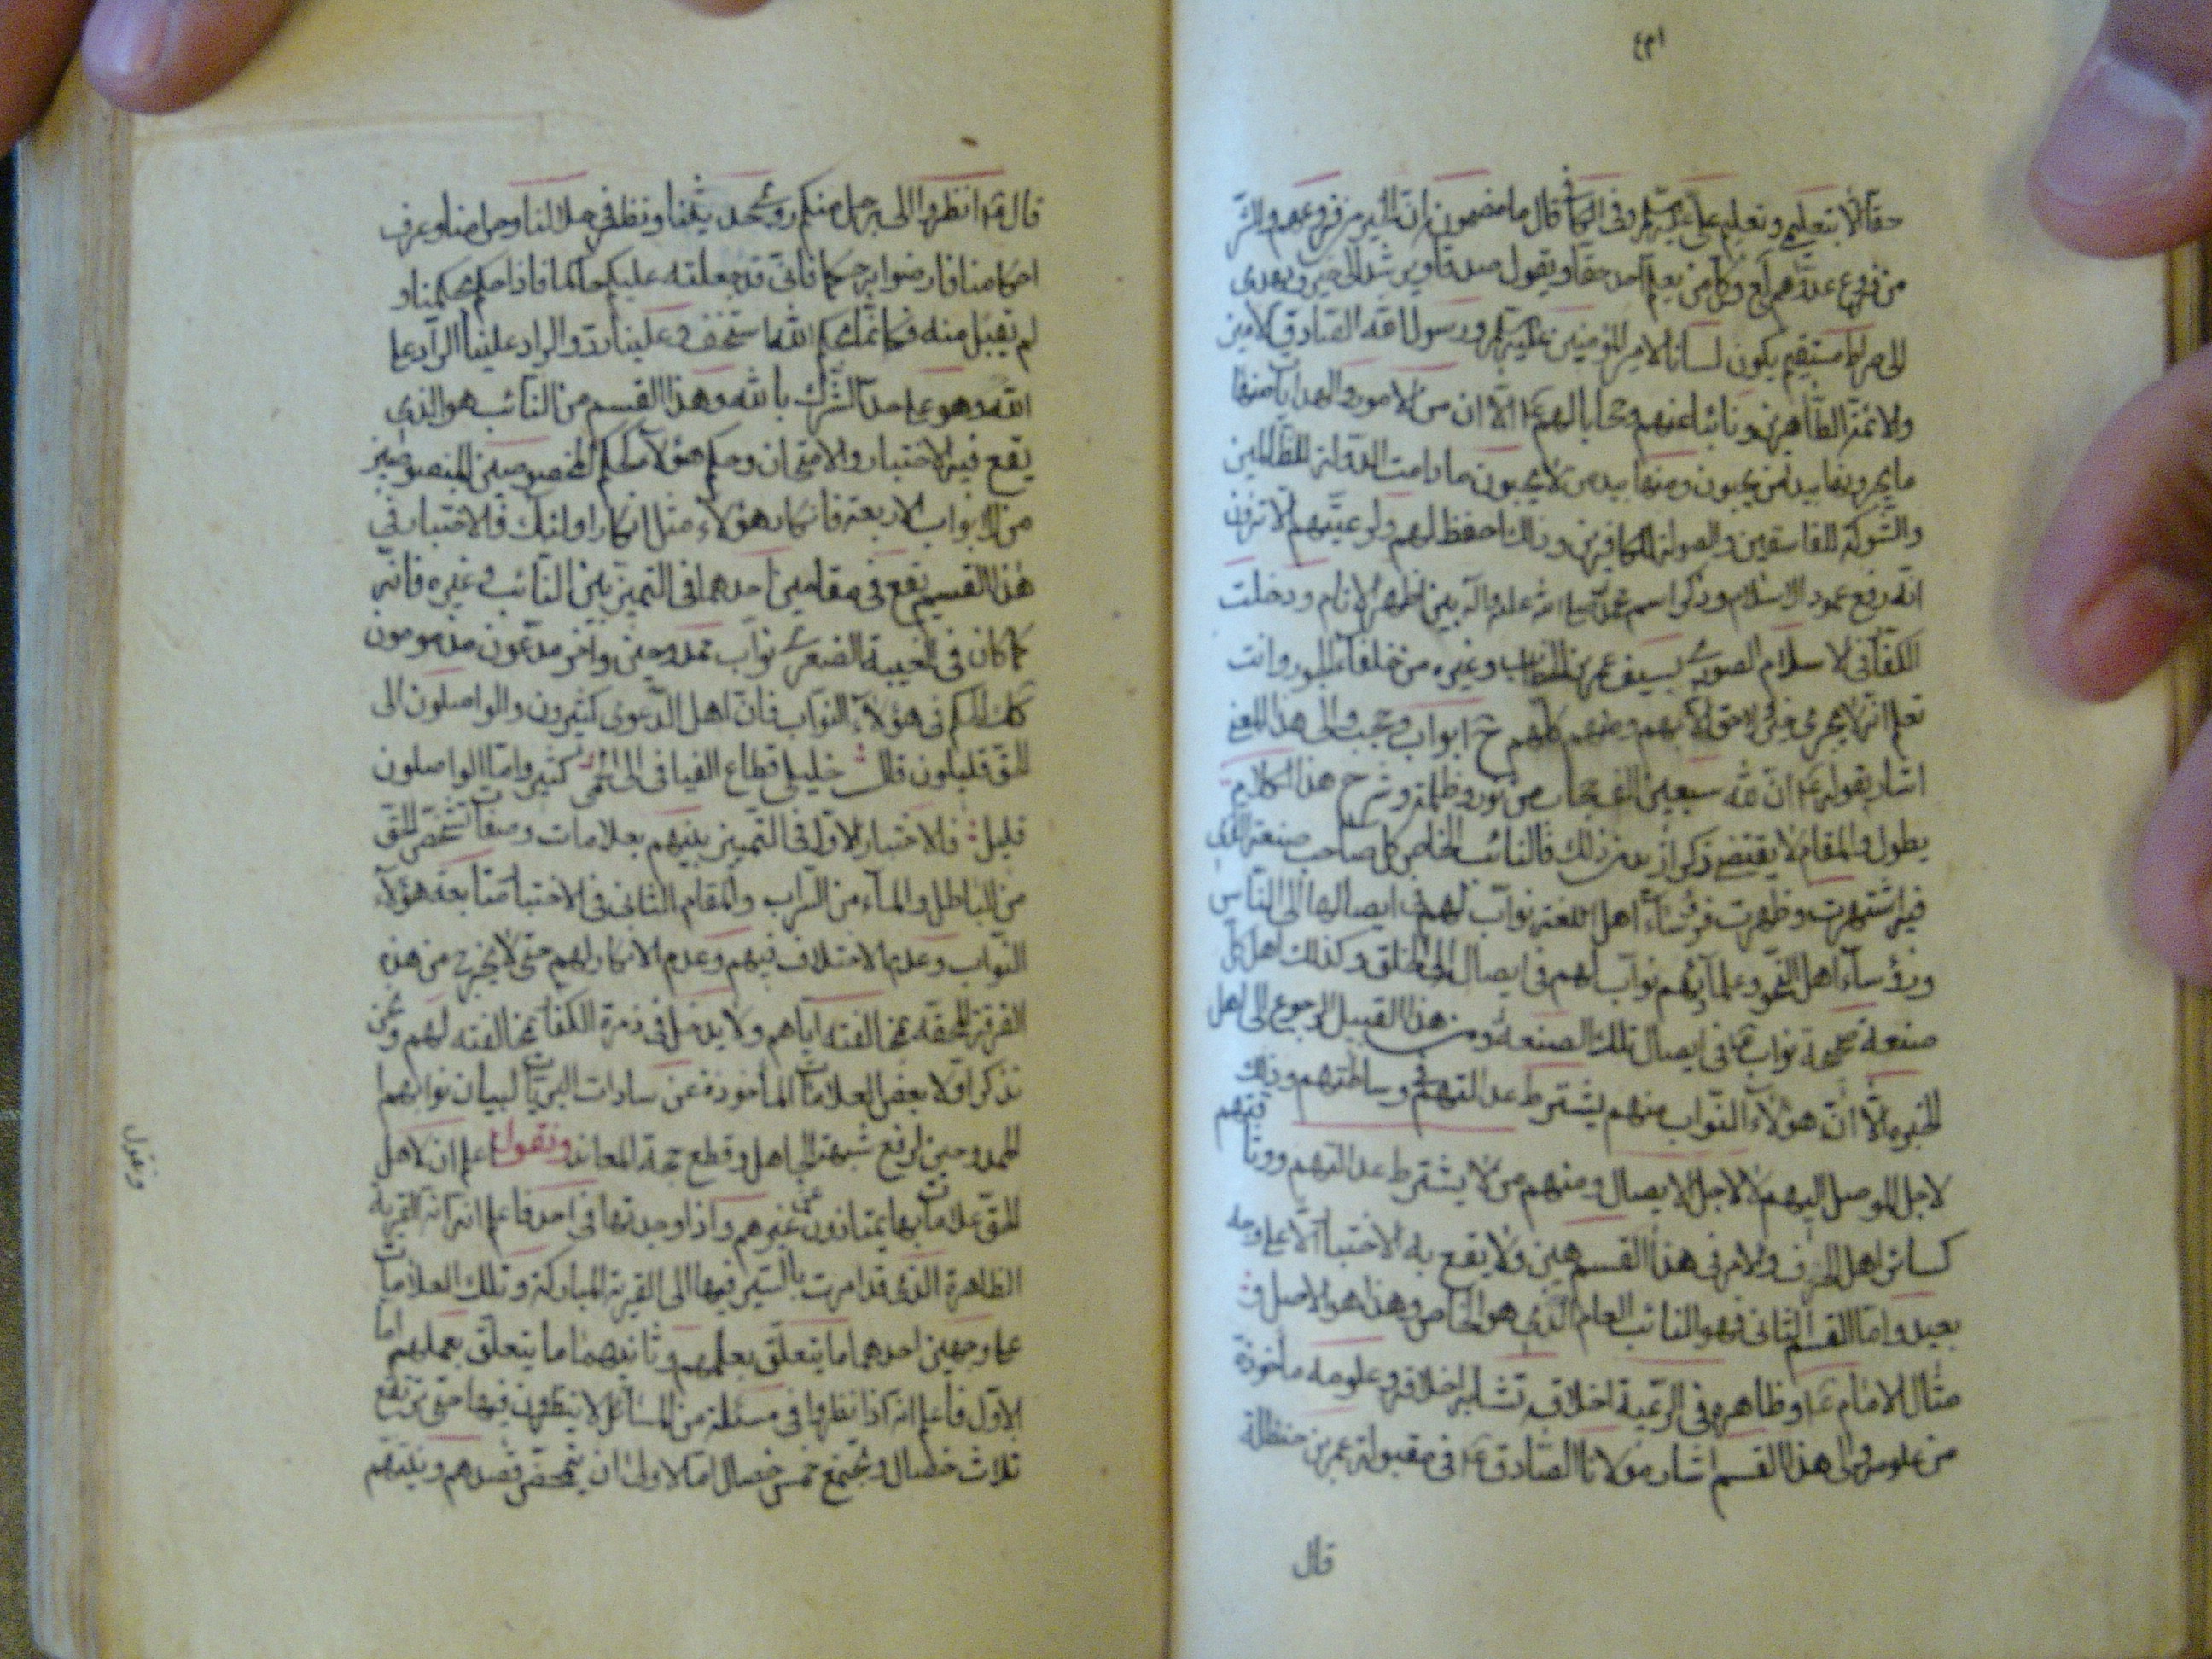 ٤٣١
حقا الا بتعليم وتعليم علي عليه السلم وفي الكافي قال ما مضمونه ان الخير من فروعهم والشر
من فروع عدوهم اه وكل من يعلم احد حقا ويقول صدقا ويرشد الى خير ويهدى
الى صراط مستقيم يكون لسانا لامير المؤمنين عليه السلم ورسول الله الصادق الامين
والائمة الطاهرين ونائبا عنهم وبابا لهم ع الا ان من الامور والهدايات منها
ما يجرونها بيد من يحبون ومنها بيد من لا يحبون ما دامت الدولة للظالمين
والشوكة للفاسقين والصولة للكافرين وذلك احفظ لهم ولرعيتهم الا ترى
انه رفع عمود الاسلام وذكر اسم محمد صلى الله عليه وآله بين اظهر الانام ودخلت
الكفار في الاسلام الصورى بسيف عمر بن الخطاب وغيره من خلفاء الجور وانت
تعلم انه لا يجرى خير الا حق الا بهم ومنهم كلهم ح ابواب وحجب والى هذا المعنى
اشار بقوله ع ان لله سبعين الف حجاب من نور وظلمة وشرح هذا الكلام
يطول والمقام لا يقتضى ذكر ازيد من ذلك فالنائب الخاص كل صاحب صنعة الذى
فيه اشتهرت وظهرت فرؤساء اهل اللغة نواب لهم في ايصالها الى الناس
ورؤساء اهل النحو وعلماؤهم نواب لهم في ايصال الى الخلق وكذلك اهل كل
صنعة صحيحة نوابها في ايصال تلك الصنعة ومن هذا القبيل الرجوع الى اهل
الخبرة الا ان هؤلاء النواب منهم يشترط عدالتهم في وساطتهم وذلك
لاجل الموصل اليهم لا لاجل الايصال ومنهم من لا يشترط عدالتهم ووثاقتهم
كسائر اهل الحرف والامر في هذا القسم هين ولا يقع به الاختبار الا على وجه
بعيد واما القسم الثاني فهو النائب العام الذى هو الخاص وهذا هو الاصل و
مثال الامام ع وظاهره في الرعية اخلاقه تشابه اخلاقه وعلومه ماخوذة
من علومه والى هذا القسم اشار مولانا الصادق ع في مقبولة عمر بن حنظلة
قال
قال ع انظروا الى رجل منكم روى حديثنا ونظر في حلالنا وحرامنا وعرف
احكامنا فارضوا به حكما فانى قد جعلته عليكم حاكما فاذا حكم بحكمنا و
لم تقبل منه فكانما بحكم الله استخف وعلينا رد والراد علينا الراد على
الله وهو على حد الشرك بالله وهذا القسم من النائب هو الذى
يقع فيه الاختبار والامتحان وحكم هؤلاء كحكم المخصوصين المنصوصين
من الابواب الاربعة فانكار هؤلاء مثل انكار اولئك فالاختبار في
هذا القسم يقع في مقامين احدهما في التميز بين النائب وغيره فانه
كما كان في الغيبة الصغرى نواب ممدوحين واخر مدعون مذمومون
كك الحكم في هؤلاء النواب فان اهل الدعوى كثيرون والواصلون الى
الحق قليلون قال خليلى قطاع الفيافى الى الحمى كثير واما الواصلون
قليل فالاختبار الاول في التمييز بينهم بعلامات وصفات تشخص الحق
من الباطل والماء من السراب والمقام الثاني في الاختبار متابعة هؤلاء
النواب وعدم الاختلاف فيهم وعدم الانكار لهم حتى لا يخرج من هذه
الفرقة المحقة بمخالفته اياهم ولا يدخل في زمرة الكفار بمخالفته لهم ونحن
نذكر اولا بعض العلامات الماخوذة عن سادات البريات لبيان نوابهم
الممدوحين لرفع شبهة الجاهل وقطع حجة المعاند ونقول اعلم ان لاهل
الحق علامات بها يمتازون عن غيرهم واذا وجدتها في احد فاعلم انه انه القرية
الظاهرة الذى قد امرت بالسير فيها الى القرية المباركة وتلك العلامات
على وجهين احدهما ما يتعلق بعلمهم وثانيهما ما يتعلق بعملهم اما
الاول فاعلم انه اذا نظروا في مسئلة من المسائل لا ينظرون فيها حتى ترتفع
ثلاث خصال وتجتمع خمس خصال اما الاولى ان يتمحض قصدهم ونيتهم
ونقول